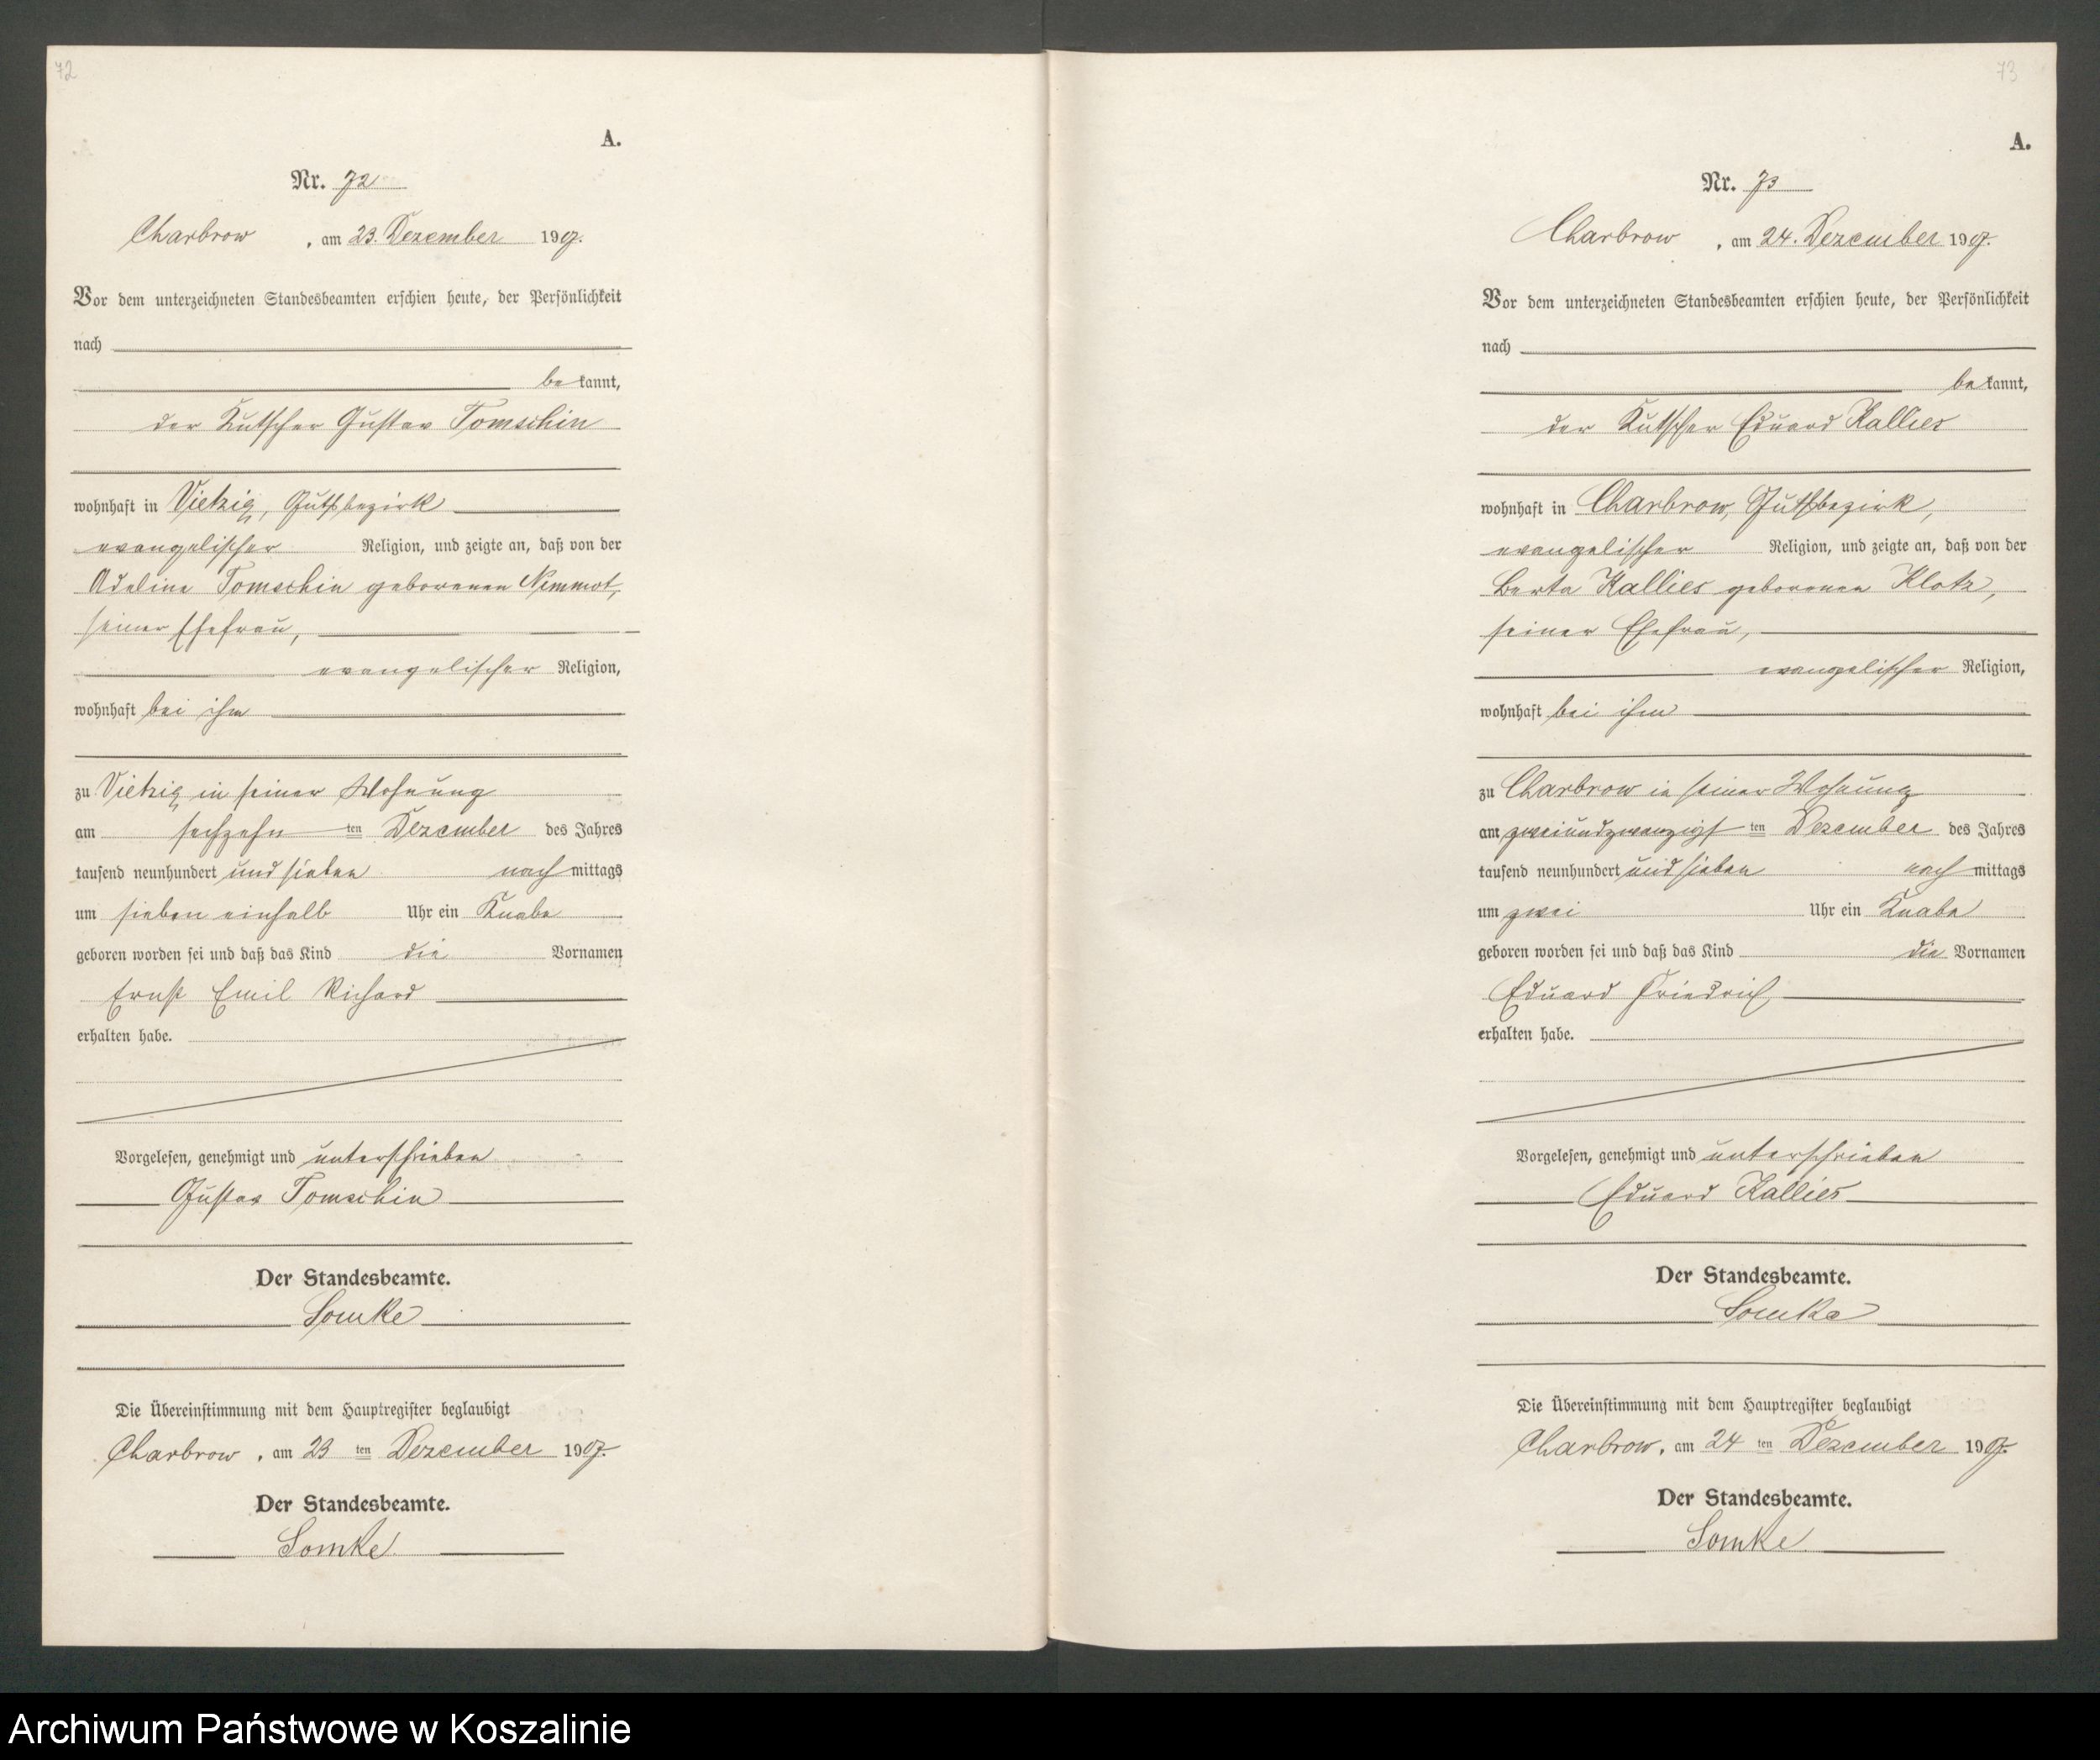 72
A.
Nr. 72
Charbrow, am 23. Dezember 1907.
Vor dem unterzeichneten Standesbeamten erschien heute, der Persönlichkeit
nach
bekannt,
der Kutscher Gustav Tomschin
wohnhaft in Vietzig, Gutsbezirk
evangelischer Religion, und zeigte an, daß von der
Adeline Tomschin geborenen Nimmot,
seiner Ehefrau,
evangelischer Religion,
wohnhaft bei ihm
zu Vietzig in seiner Wohnung
am sechzehn ten Dezember des Jahres
tausend neunhundert und sieben nachmittags
um sieben einhalb Uhr ein Knabe
geboren worden sei und daß das Kind die Vornamen
Ernst Emil Richard
erhalten habe.
Vorgelesen, genehmigt und unterschrieben
Gustav Tomschin
Der Standesbeamte.
Somke
Die Übereinstimmung mit dem Hauptregister beglaubigt
Charbrow, am 23 ten Dezember 1907.
Der Standesbeamte.
Somke.
73
A.
Nr. 73
Charbrow, am 24. Dezember 1907.
Vor dem unterzeichneten Standesbeamten erschien heute, der Persönlichkeit
nach
bekannt,
der Kutscher Eduard Kallies
wohnhaft in Charbrow, Gutsbezirk,
evangelischer Religion, und zeigte an, daß von der
Berta Kallies geborenen Klotz,
seiner Ehefrau,
evangelischer Religion,
wohnhaft bei ihm
zu Charbrow in seiner Wohnung
am zweiundzwanzigsten Dezember des Jahres
tausend neunhundert und sieben nachmittags
um zwei Uhr ein Knabe
geboren worden sei und daß das Kind die Vornamen
Eduard Friedrich
erhalten habe.
Vorgelesen, genehmigt und unterschrieben
Eduard Kallies
Der Standesbeamte.
Somke
Die Übereinstimmung mit dem Hauptregister beglaubigt
Charbrow, am 24 ten Dezember 1907.
Der Standesbeamte.
Somke.
Archiwum Państwowe w Koszalinie